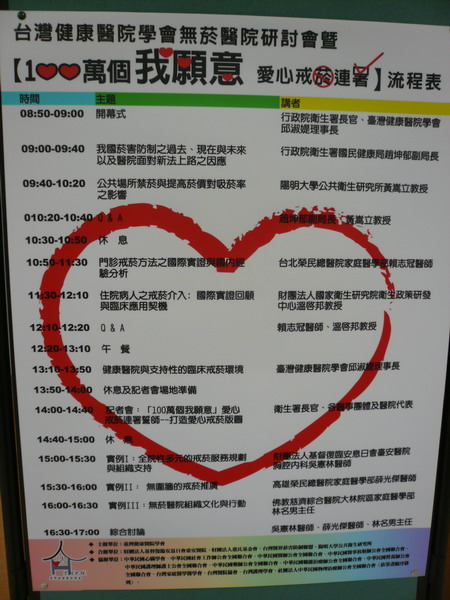 台灣健康醫院學會無菸醫院研討會暨
【100萬個我願意 愛心戒菸連署】流程表
時間 主題 講者
08:50-09:00 開幕式 行政院衛生署長官、臺灣健康醫院學會
邱淑媞理事長
09:00-09:40 我國菸害防制之過去、現在與未來 行政院衛生署國民健康局趙坤郁副局長
以及醫院面對新法上路之因應
09:40-10:20 公共場所禁菸與提高菸價對吸菸率 陽明大學公共衛生研究所黃嵩立教授
之影響
010:20-10:40 Q & A 趙坤郁副局長、黃嵩立教授
10:30-10:50 休 息
10:50-11:30 門診戒菸方法之國際實證與國內經 台北榮民總醫院家庭醫學部賴志冠醫師
驗分析
11:30-12:10 住院病人之戒菸介入: 國際實證回顧 財團法人國家衛生研究院衛生政策研發
與臨床應用契機 中心溫啓邦教授
12:10-12:20 Q & A 賴志冠醫師、溫啓邦教授
12:20-13:10 午 餐
13:10-13:50 健康醫院與支持性的臨床戒菸環境 臺灣健康醫院學會邱淑媞理事長
13:50-14:00 休息及記者會場地準備
14:00-14:40 記者會:「100萬個我願意」愛心 衛生署長官、各醫事團體及醫院代表
戒菸連署誓師--打造愛心戒菸版圖
14:40-15:00 休 息
15:00-15:30 實例I: 全院性多元的戒菸服務規劃 財團法人基督復臨安息日會臺安醫院
與組織支持 胸腔內科吳憲林醫師
15:30-16:00 實例II: 無圍牆的戒菸推廣 高雄榮民總醫院家庭醫學部薛光傑醫師
16:00-16:30 實例III: 無菸醫院組織文化與行動 佛教慈濟綜合醫院大林院區家庭醫學部
林名男主任
16:30-17:00 綜合討論 吳憲林醫師、薛光傑醫師、林名男主任
主辦單位:臺灣健康醫院學會